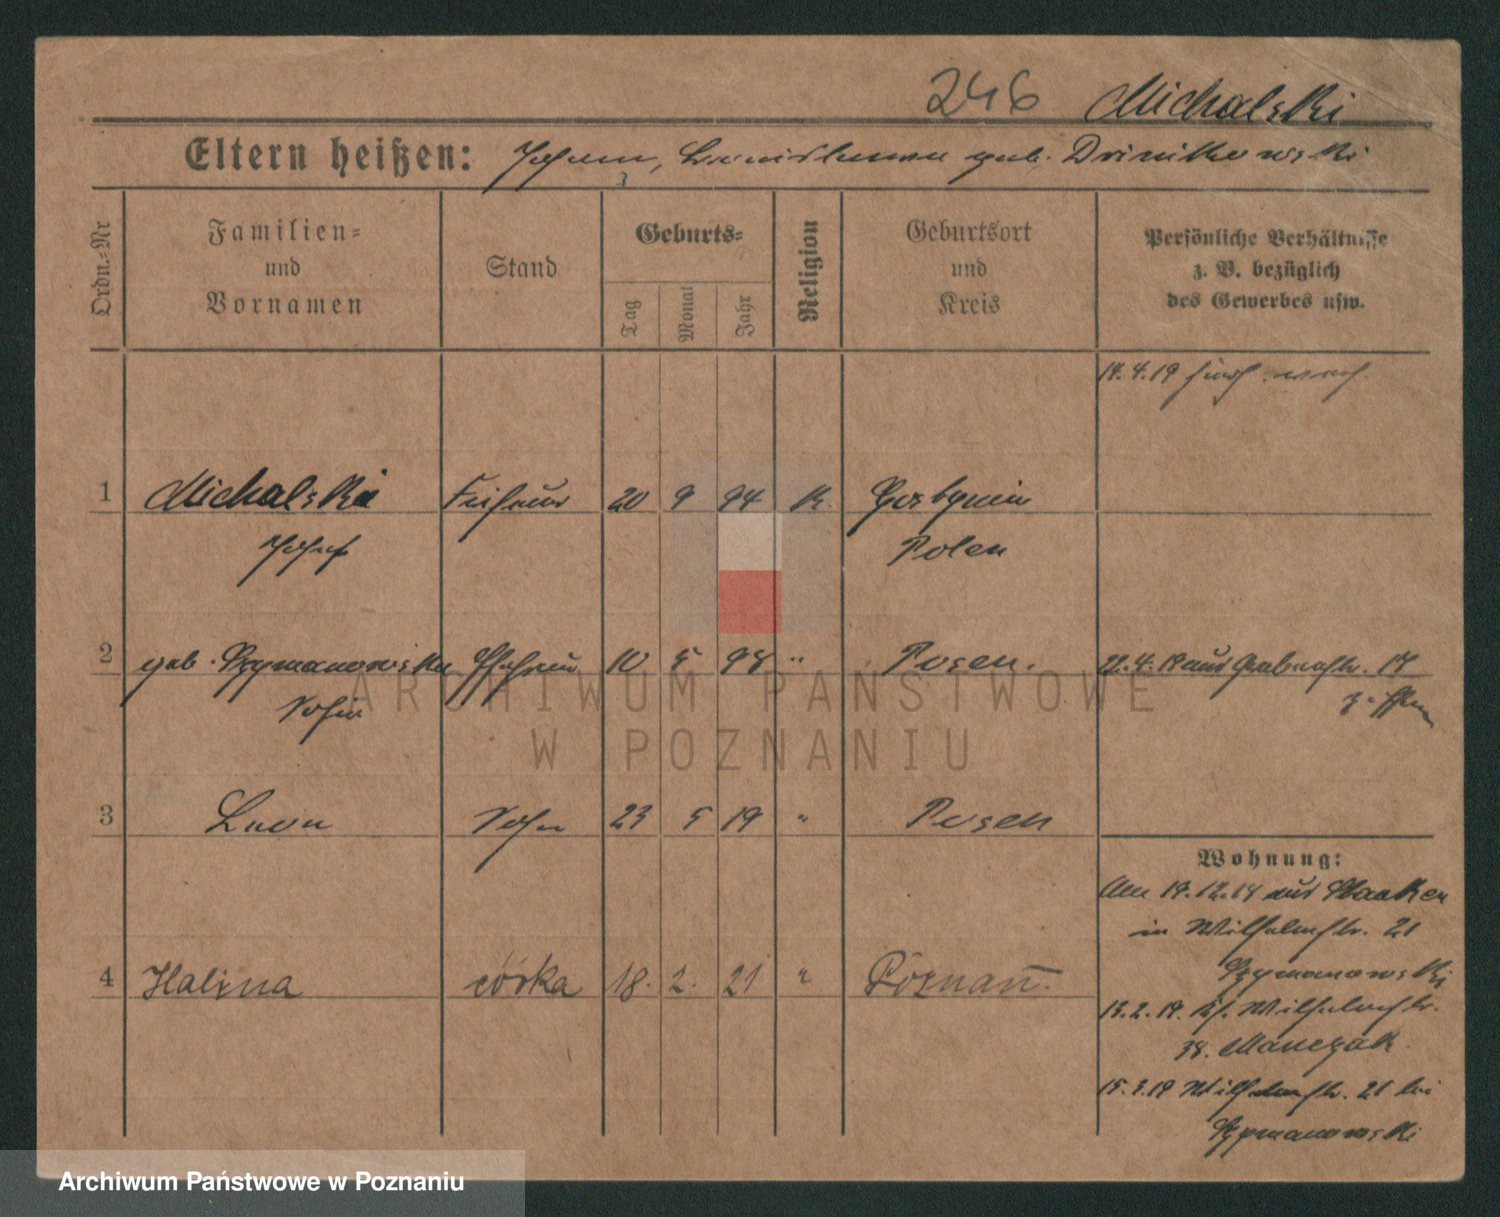 246 Michalski
Eltern heißen: Johann, geb. Drinikowski
Ordn.-Nr
Familien-
und
Vornamen
Stand
Geburts-
Tag
Monat
Jahr
Religion
Geburtsort
und
Kreis
Persönliche Verhältnisse
z. B. bezüglich
des Gewerbes usw.
14.4.19
1 Michalski Friseur 20 9 94 K.
Josef Polen
2 geb. Szymanowska Ehefrau 10 5 98 " Posen.
Sofie
3 Leon Sohn 23 5 19 " Posen
4 Halina córka 18. 2. 21 " Poznań.
Wohnung:
Am 19.12.18 aus
in Wilhelmstr. 21
Szymanowski
13.2.19. Wilhelmstr.
38. Manczak.
15.3.19 Wilhelmstr. 21 bei
Szymanowski
ARCHIWUM PAŃSTWOWE
W POZNANIU
Archiwum Państwowe w Poznaniu